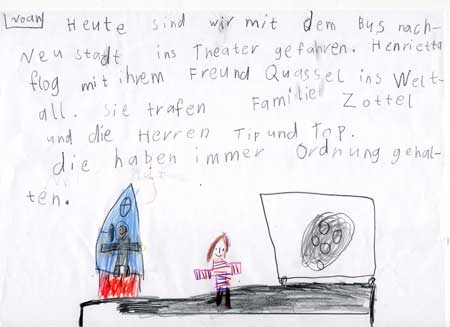 Noah
Heute sind wir mit dem Bus nach-
Neustadt ins Theater gefahren. Henrietta
flog mit ihrem Freund Quassel ins Welt-
all. Sie trafen Familie Zottel
und die Herren Tip und Top.
die haben immer Ordnung gehal-
ten.